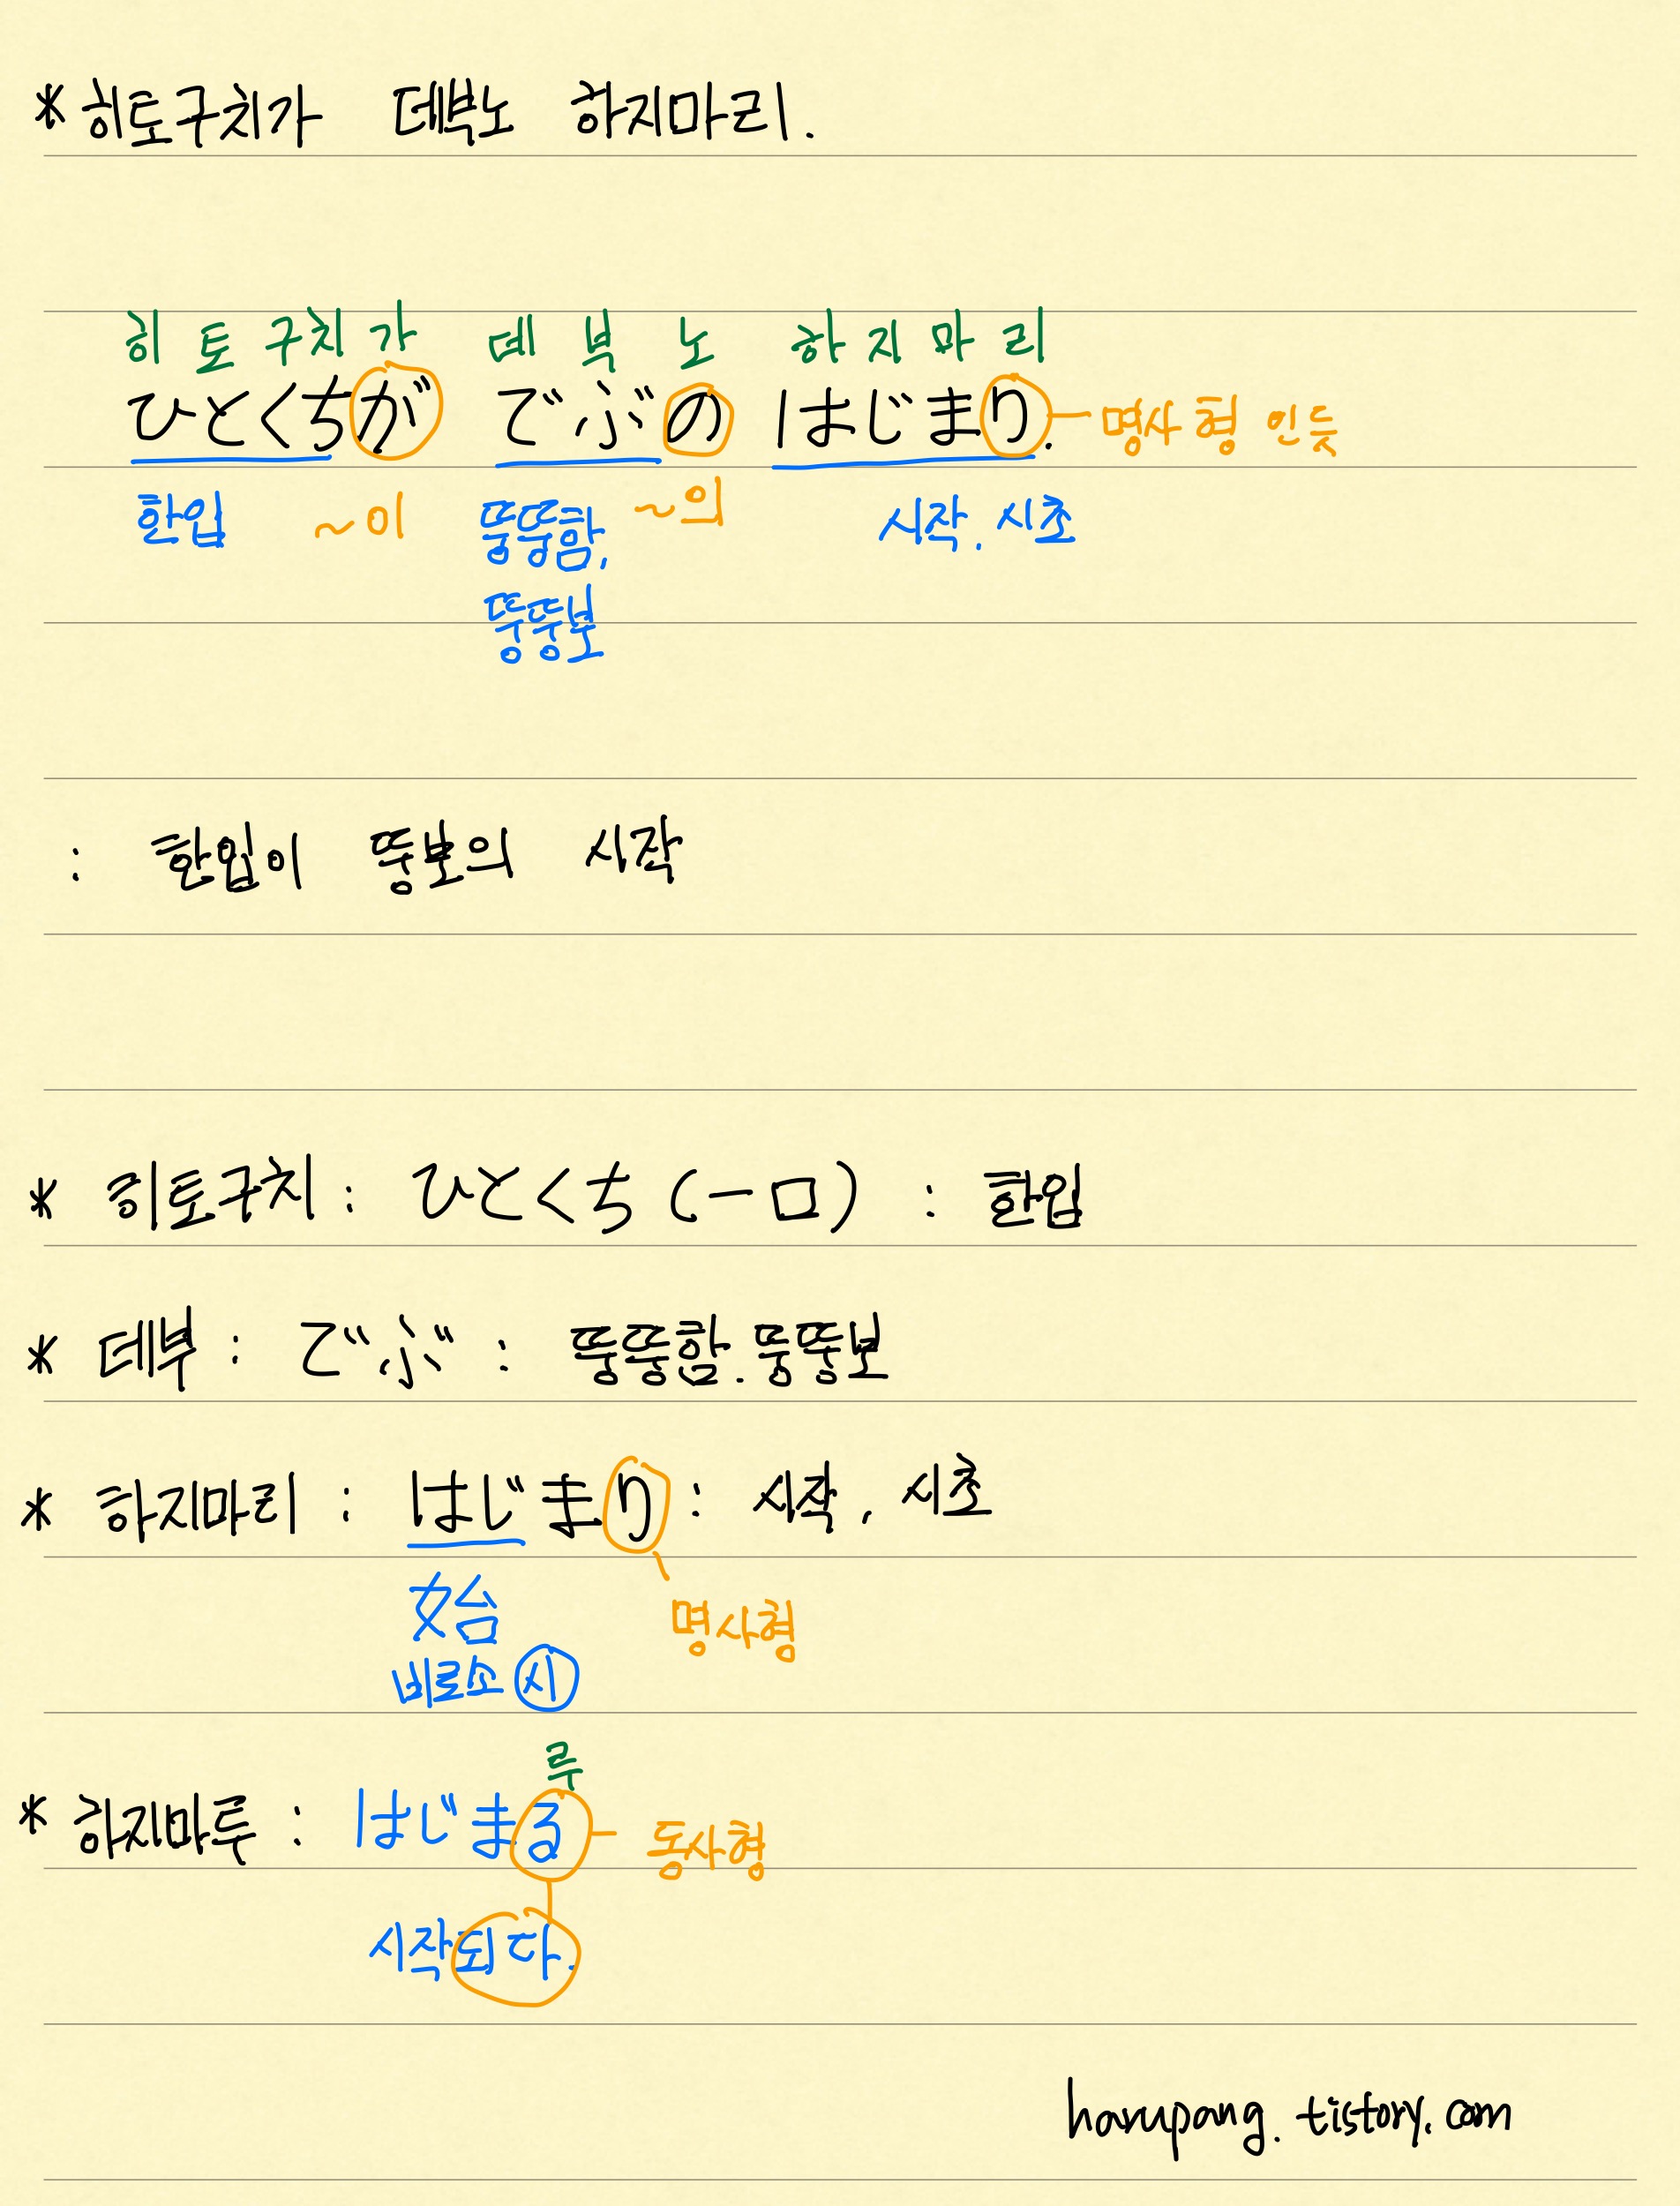 *히토구치가 데부노 하지마리.
히토구치가 데부노 하지마리
ひとくちが でぶの はじまり. 명사형 인듯
한입 ~이 뚱뚱함, ~의 시작, 시초
뚱뚱보
: 한입이 뚱보의 시작
* 히토구치 : ひとくち (一口) : 한입
* 데부 : でぶ : 뚱뚱함. 뚱뚱보
* 하지마리 : はじまり : 시작, 시초
始 명사형
비로소 시
루
* 하지마루 : はじまる - 동사형
시작되다.
harupang.tistory.com